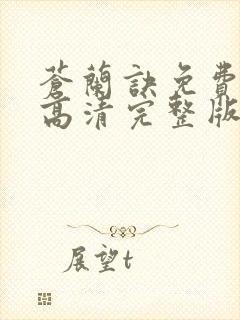 蒼蘭訣免費
高清完整版
展望t